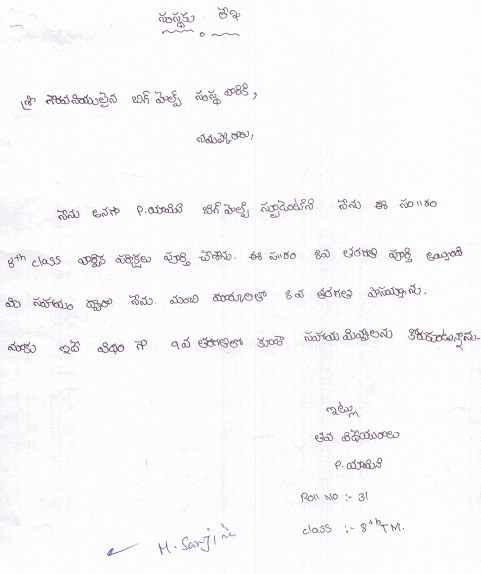 సంస్థకు లేఖ
శ్రీ గౌరవనియులైన బిగ్ హెల్ప్ సంస్థ వారికి,
నమస్కారాలు,
నేను అనగా P.యామిని బిగ్ హెల్ప్ స్టూడెంట్‌ని నేను ఈ సం॥రం
8th class వార్షిక పరిక్షలు పూర్తి చేశాను. ఈ స॥రం 8వ తరగతి పూర్తి అయ్యింది
మీ సహాయం ద్వారా నేను మంచి మార్కులతో 8వ తరగతి పాసయ్యాను.
మాకు ఇదే విధం గా 9వ తరగతిలో కూడా సహాయ కోరుకుంటున్నాను.
ఇట్లు
తమ విధేయురాలు
P.యామిని
Roll No :- 31
class :- 8th TM.
M. Sanjini